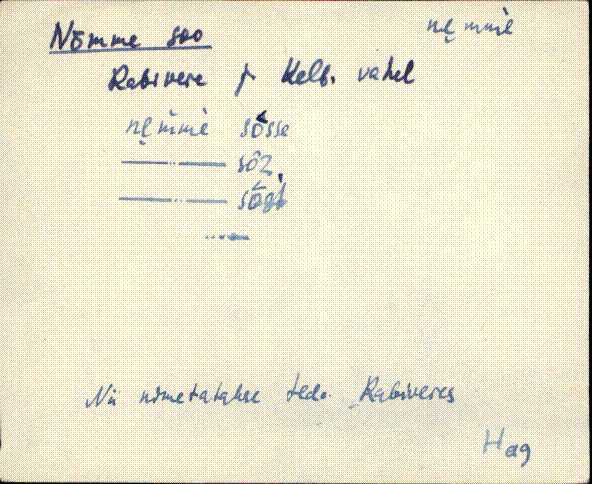 Nõmme soo
nę̆mmè
Rabivere j. Kelb. vahel
nę̆m̀mè sósse
—〃— sôz
—〃— 
Nii nimetatakse teda Rabiveres
Hag